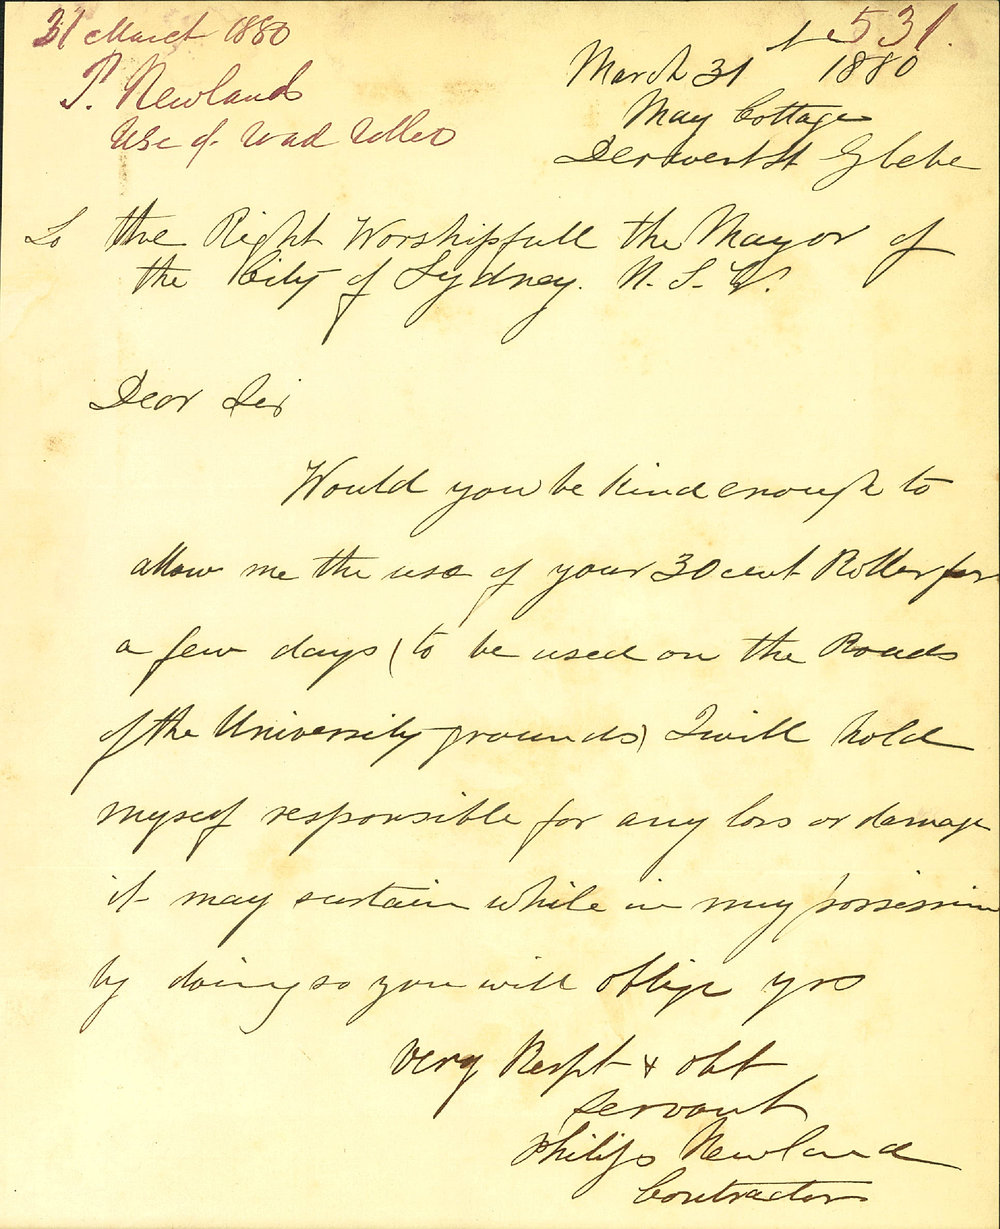 31 March 1880
P. Newland
Use of road roller
531.
March 31 1880
May Cottage
Derwent St Glebe
To the Right Worshipfull the Mayor of
the City of Sydney. N. S. W.
Dear Sir
Would you be kind enough to
allow me the use of your 30 cwt Roller for
a few days (to be used on the Roads
of the University grounds) I will hold
myself responsible for any loss or damage
it may sustain while in my possession
by doing so you will oblige yrs
Very Respt & obt
servant
Philip Newland
Contractor